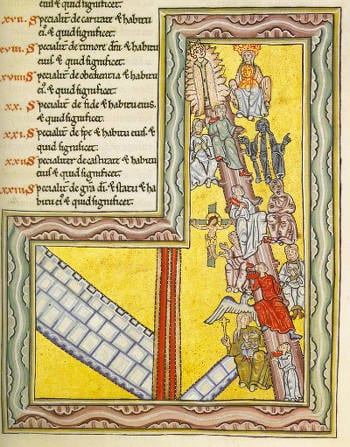 ei' & quid significet.
XVII. Specialit' de caritate & habitu
ei' & quid significet.
XVIII. Specialit' de timore dni & habitu
ei' & quid significet.
XVIIII. Specialit' de obedientia & habitu
ei' & quid significet.
XX. Specialit' de fide & habitu eius.
& quid significet.
XXI. Specialit' de spe & habitu eius. &
quid significet.
XXII. Specialiter de castitate & habitu
eius & quid significet.
XXIII. Specialit' de gra di. & statu & ha
bitu ei' & quid significet.